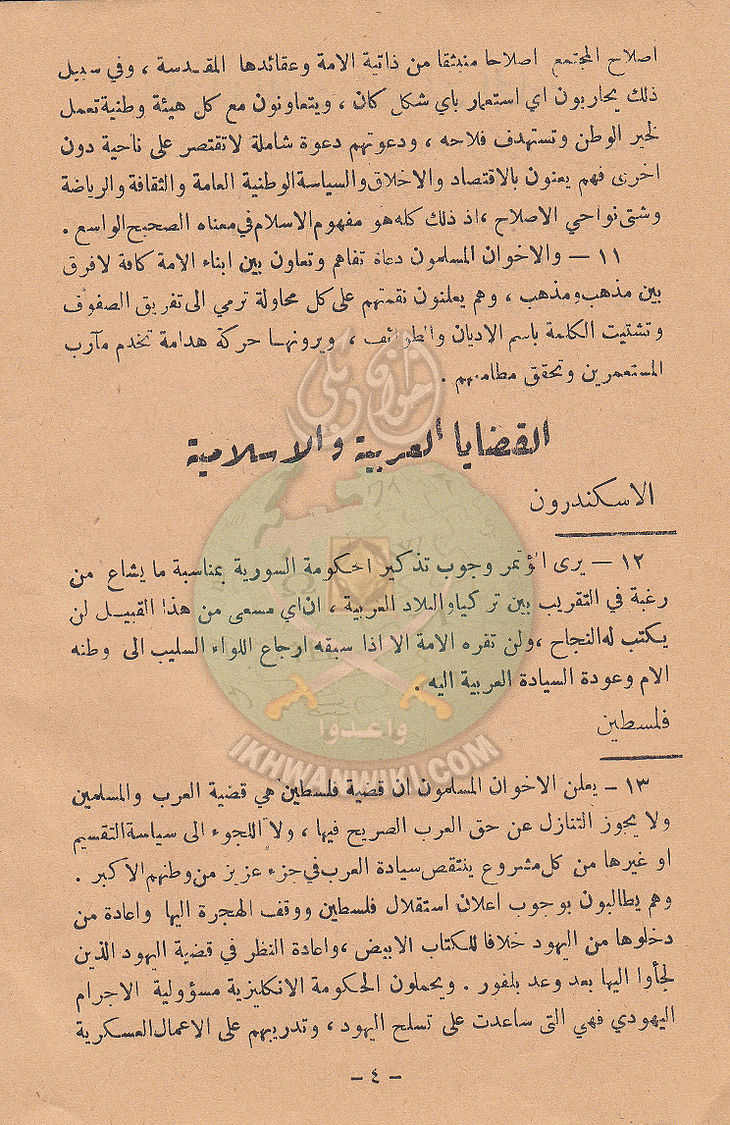 اصلاح المجتمع اصلاحا منبثقا من ذاتية الامة وعقائدها المقدسة ، وفي سبيل
ذلك يحاربون اي استعمار باي شكل كان ، ويتعاونون مع كل هيئة وطنية تعمل
لخير الوطن وتستهدف فلاحه ، ودعوتهم دعوة شاملة لا تقتصر على ناحية دون
اخرى فهم يعنون بالاقتصاد والاخلاق والسياسة الوطنية العامة والثقافة والرياضة
وشتى نواحي الاصلاح ، اذ ذلك كله هو مفهوم الاسلام في معناه الصحيح الواسع .
١١ — والاخوان المسلمون دعاة تفاهم وتعاون بين ابناء الامة كافة لا فرق
بين مذهب ومذهب ، وهم يعلنون نقمتهم على كل محاولة ترمي الى تفريق الصفوف
وتشتيت الكلمة باسم الاديان والطوائف ، ويرونها حركة هدامة تخدم مآرب
المستعمرين وتحقق مطامعهم .
اخوان ويكي
القضايا العربية والاسلامية
الاسكندرون
١٢ — يرى المؤتمر وجوب تذكير الحكومة السورية بمناسبة ما يشاع من
رغبة في التقريب بين تركيا والبلاد العربية ، ان اي مسعى من هذا القبيل لن
يكتب له النجاح ، ولن تقره الامة الا اذا سبقه ارجاع اللواء السليب الى وطنه
الام وعودة السيادة العربية اليه .
واعدوا
فلسطين
IKHWANWIKI.COM
١٣ - يعلن الاخوان المسلمون ان قضية فلسطين هي قضية العرب والمسلمين
ولا يجوز التنازل عن حق العرب الصريح فيها ، ولا اللجوء الى سياسة التقسيم
او غيرها من كل مشروع ينتقص سيادة العرب في جزء عزيز من وطنهم الاكبر .
وهم يطالبون بوجوب اعلان استقلال فلسطين ووقف الهجرة اليها واعادة من
دخلوها من اليهود خلافا للكتاب الابيض ، واعادة النظر في قضية اليهود الذين
لجأوا اليها بعد وعد بلفور . ويحملون الحكومة الانكليزية مسؤولية الاجرام
اليهودي فهي التي ساعدت على تسلح اليهود ، وتدريبهم على الاعمال العسكرية
— ٤ —